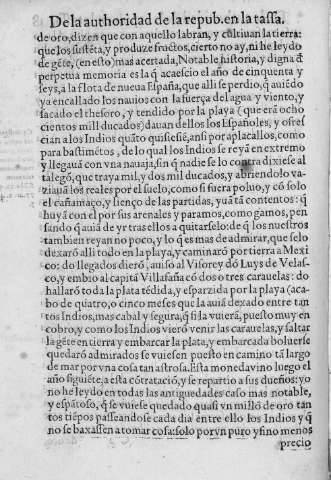 De la authoridad de la repub. en la tassa.
de oro, dizen que con aquello labran, y cultiuan la tierra:
que los sustẽta, y produze fructos, cierto no ay, ni he leydo
de gẽte, (en esto) mas acertada, Notable historia, y digna đ
perpetua memoria es la q̃ acaescio el año de cinquenta y
seys, a la flota de nueua España, que alli se perdio, q̃ auiẽdo
ya encallado los nauios con la fuerça del agua y viento, y
sacado el thesoro, y tendido por la playa (que erã ocho
cientos mill ducados) dauan dellos los Españoles, y ofres
cian a los Indios quãto quisiesẽ, ansi por aplacallos, como
para bastimẽtos, de lo qual los Indios se reyã en extremo
y llegauã con vna nauaja, sin q̃ nadie se lo contradixiese al
talegõ, que traya mil, y dos mil ducados, y abriendolo va-
ziauã los reales por el suelo, como si fuera poluo, y cõ solo
el cañamaço, y lienço de las partidas, yuã tã contentos: q̃
huyã con el por sus arenales y paramos, como gamos, pen
sando q̃ auiã de yr tras ellos a quitarselo: de q̃ los nuestros
tambien reyan no poco, y lo q̃ es mas de admirar, que selo
dexarõ alli todo en la playa, y caminarõ por tierra a Mexi
co: do llegados dierõ, auiso al Visorey do Luys de Velas-
co, y embio al capitã Villafaña cõ dos o tres carauelas: do
hallarõ toda la plata tẽdida, y esparzida por la playa (aca-
bo de quatro, o cinco meses que la auiã dexado entre tan
tos Indios, mas cabal y segura, q̃ si la vuierã, puesto muy en
cobro, y como los Indios vierõ venir las carauelas, y saltar
la gẽte en tierra y embarcar la plata, y embarcada boluerse
quedarõ admirados se vuiesen puesto en camino tã largo
de mar por vna cosa tan astrosa. Esta moneda vino luego el
año siguiẽte, a esta cõtratació, y se repartio a sus dueños: yo
no he leydo en todas las antiguedades caso mas notable,
y espãtoso, q̃ se vuiese quedado quasi vn millõ de oro tan
tos tiẽpos passeandose cada dia entre ello los Indios y q̃
no se baxassen a tomar cosa: solo por vn puro y fino menos
precio